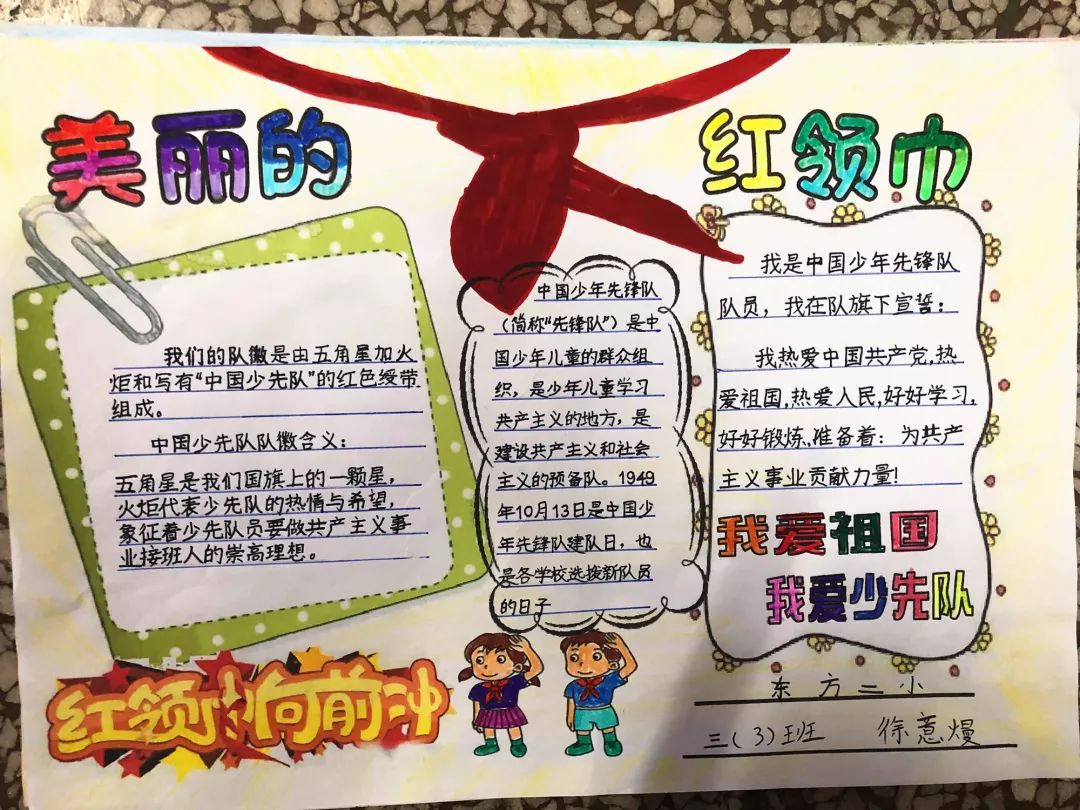 美丽的
红领巾
我们的队徽是由五角星加火
炬和写有“中国少先队”的红色绶带
组成。
中国少先队队徽含义：
五角星是我们国旗上的一颗星，
火炬代表少先队的热情与希望，
象征着少先队员要做共产主义事
业接班人的崇高理想。
中国少年先锋队
（简称“先锋队”）是中
国少年儿童的群众组
织，是少年儿童学习
共产主义的地方，是
建设共产主义和社会
主义的预备队。1949
年10月13日是中国少
年先锋队建队日，也
是各学校选拨新队员
的日子
我是中国少年先锋队
队员，我在队旗下宣誓：
我热爱中国共产党,热
爱祖国,热爱人民,好好学习,
好好锻炼,准备着：为共产
主义事业贡献力量!
我爱祖国
我爱少先队
红领巾向前冲
东方二小
三(3)班 徐意熳